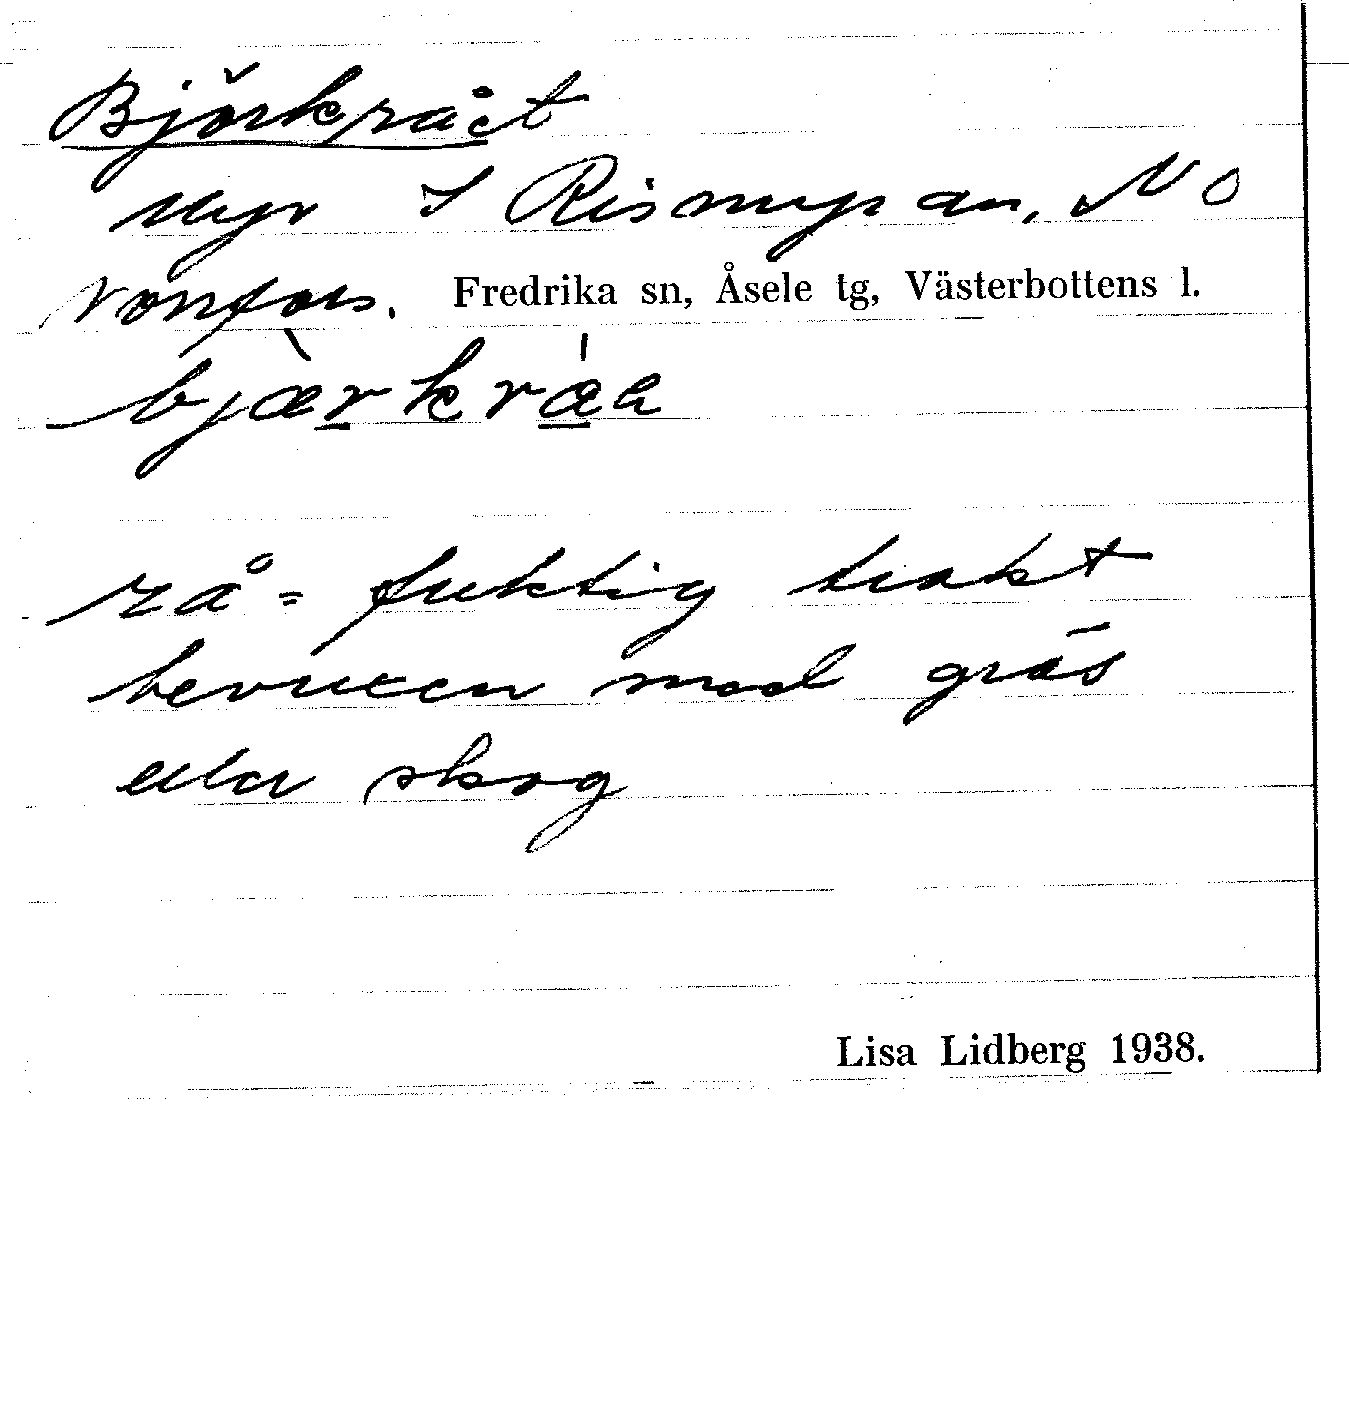 Björkrået
Myr S Rismyran, NO
Vonfors. Fredrika sn, Åsele tg, Västerbottens l.
rå = fuktig trakt
bevuxen med gräs
eller skog
Lisa Lidberg 1938.